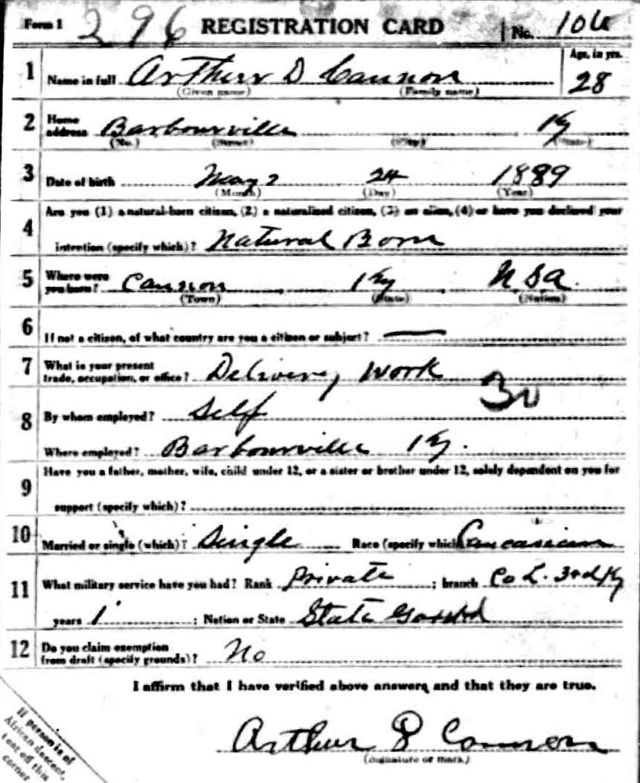 Form 1 296 REGISTRATION CARD No. 106
1 Name in full Arthur D Cannon Age, in yrs. 28
(Given name) (Family name)
2 Home address Barbourville Ky
(No.) (Street) (City) (State)
3 Date of birth May 24 1889
(Month) (Day) (Year)
4 Are you (1) a natural-born citizen, (2) a naturalized citizen, (3) an alien, (4) or have you declared your
intention (specify which)? Natural Born
5 Where were you born? Cannon Ky USA
(Town) (State) (Nation)
6 If not a citizen, of what country are you a citizen or subject? —
7 What is your present trade, occupation, or office? Delivery work
30
8 By whom employed? Self
Where employed? Barbourville Ky.
9 Have you a father, mother, wife, child under 12, or a sister or brother under 12, solely dependent on you for
support (specify which)?
10 Married or single (which)? Single Race (specify which)? Caucasian
11 What military service have you had? Rank Private ; branch Co L. 3rd Ky
years 1 ; Nation or State State Guard
12 Do you claim exemption from draft (specify grounds)? No
I affirm that I have verified above answers and that they are true.
Arthur D Cannon
(Signature or mark)
If person is of
African descent,
tear off this
corner